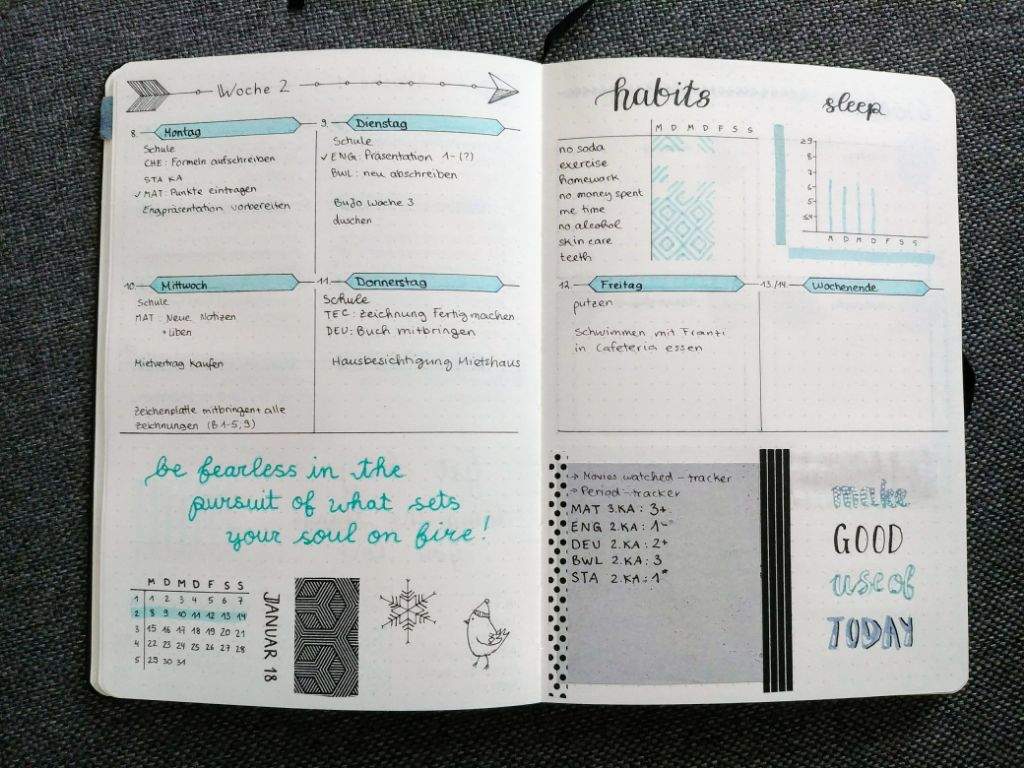 Woche 2
8. Montag
Schule
CHE: Formeln aufschreiben
STA KA
✓ MAT: Punkte eintragen
Engpräsentation vorbereiten
9. Dienstag
Schule
✓ ENG: Präsentation 1-(?)
BWL: neu abschreiben
BuJo Woche 3
duschen
10. Mittwoch
Schule
MAT: Neue Notizen
+ üben
Mietvertrag kaufen
Zeichenplatte mitbringen + alle
Zeichnungen (B1-5, 9)
11. Donnerstag
Schule
TEC: Zeichnung Fertig machen
DEU: Buch mitbringen
Hausbesichtigung Mietshaus
be fearless in the
pursuit of what sets
your soul on fire!
M D M D F S S
1 1 2 3 4 5 6 7
2 8 9 10 11 12 13 14
3 15 16 17 18 19 20 21
4 22 23 24 25 26 27 28
5 29 30 31
JANUAR 18
habits
M D M D F S S
no soda
exercise
homework
no money spent
me time
no alcohol
skin care
teeth
sleep
≥9
8
7
6
5
≤4
M D M D F S S
12. Freitag
putzen
Schwimmen mit Franzi
in Cafeteria essen
13./14. Wochenende
→ Movies watched-tracker
→ Period-tracker
MAT 3.KA: 3+
ENG 2.KA: 1-
DEU 2.KA: 2+
BWL 2.KA: 3
STA 2.KA: 1*
make
GOOD
use of
TODAY